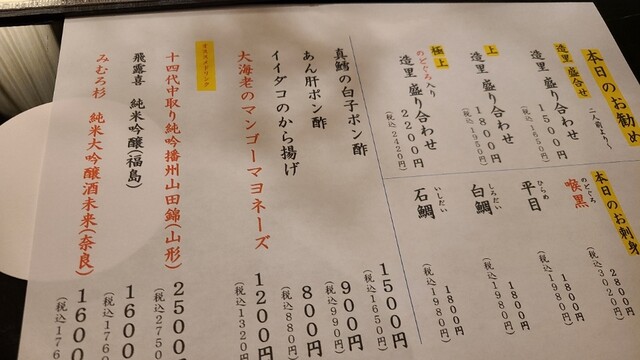 本日のお勧め
二人前より、
造里 盛合せ
造里 盛り合わせ
1500円
(税込1650円)
上
造里 盛り合わせ
1800円
(税込1950円)
極上
のどぐろ入り
造里 盛り合わせ
2200円
(税込2420円)
本日のお刺身
のどぐろ
喉黒
2800円
(税込3020円)
ひらめ
平目
1800円
(税込1980円)
しろだい
白鯛
1800円
(税込1980円)
いしだい
石鯛
1800円
(税込1980円)
真鱈の白子ポン酢
1500円
(税込1650円)
あん肝ポン酢
900円
(税込990円)
イイダコのから揚げ
800円
(税込880円)
大海老のマンゴーマヨネーズ
1200円
(税込1320円)
オススメドリンク
十四代中取り純吟播州山田錦(山形)
2500円
(税込2750
飛露喜 純米吟醸(福島)
1600
(税込1760
みむろ杉 純米大吟醸酒未来(奈良)
1600
(税込176